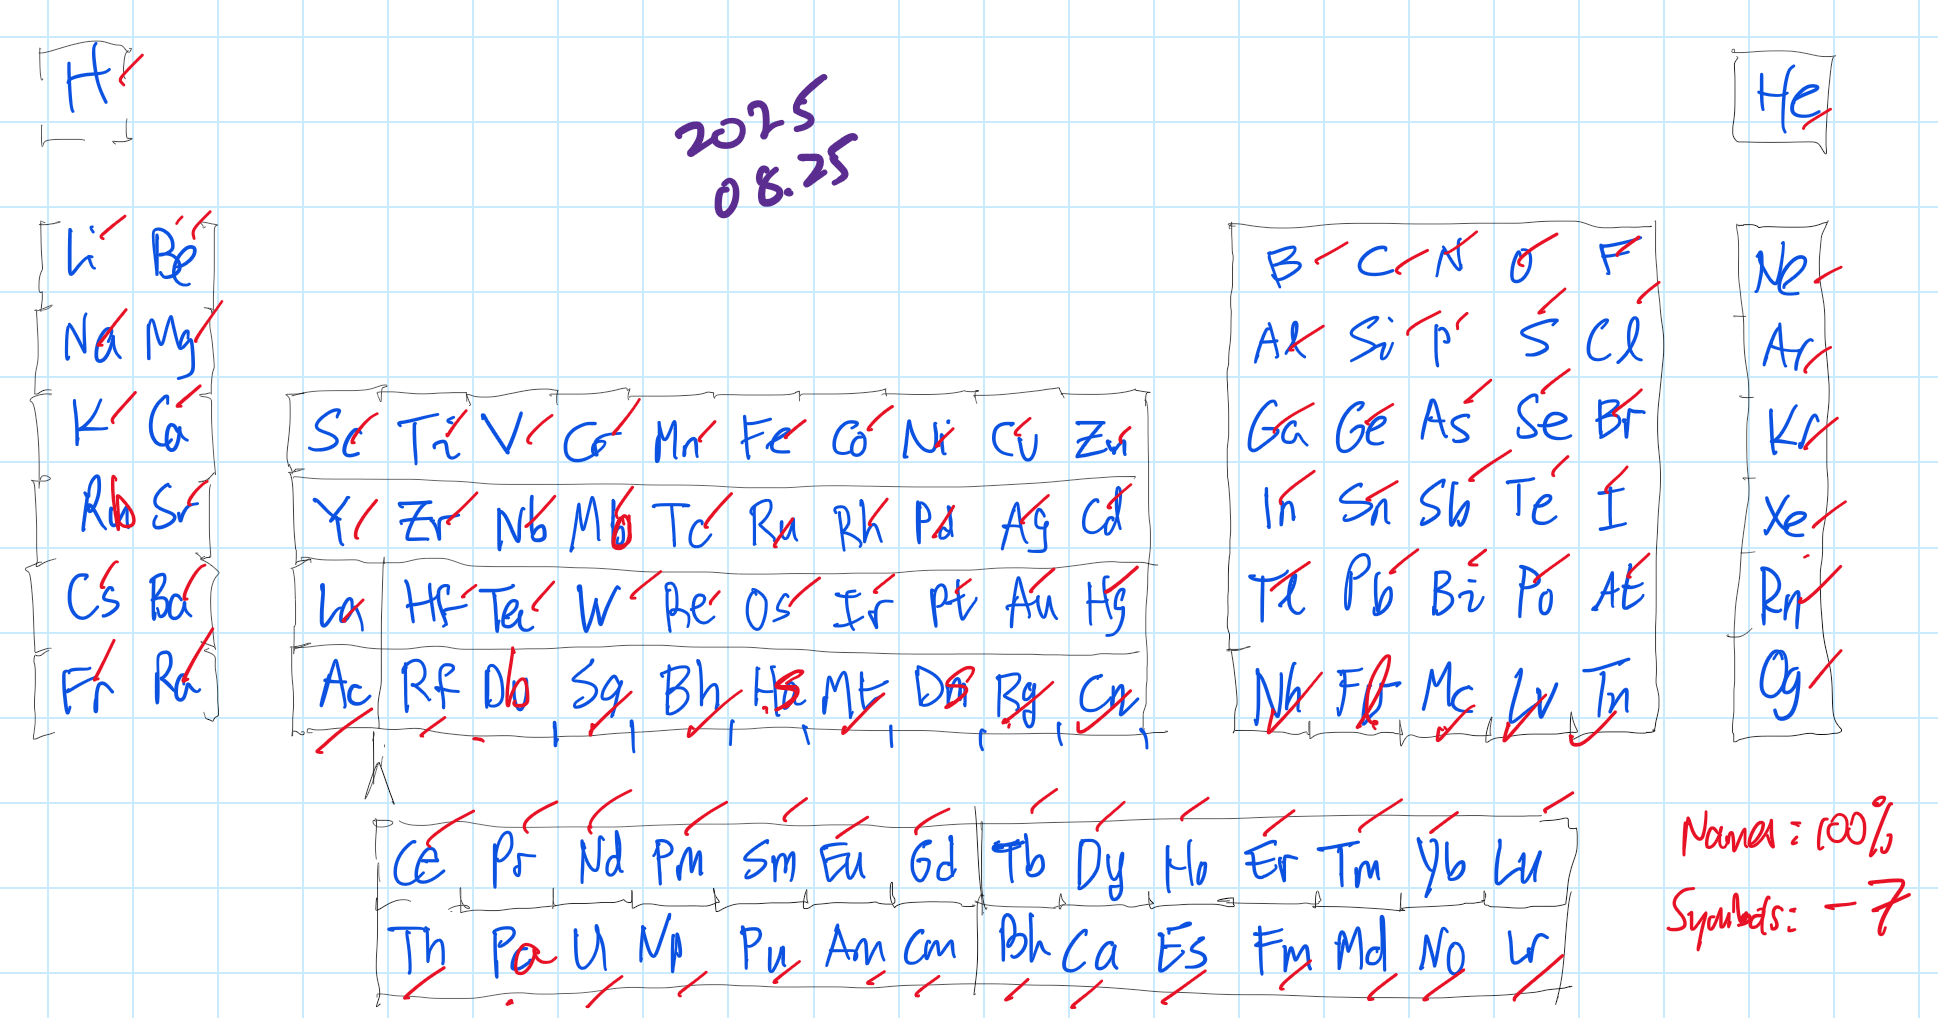 H He
2025
08.25
Li Be B C N O F Ne
Na Mg Al Si P S Cl Ar
K Ca Sc Ti V Cr Mn Fe Co Ni Cu Zn Ga Ge As Se Br Kr
Rb Sr Y Zr Nb Mo Tc Ru Rh Pd Ag Cd In Sn Sb Te I Xe
Cs Ba La Hf Ta W Re Os Ir Pt Au Hg Tl Pb Bi Po At Rn
Fr Ra Ac Rf Db Sg Bh Hs Mt Ds Rg Cn Nh Fl Mc Lv Tn Og
Ce Pr Nd Pm Sm Eu Gd Tb Dy Ho Er Tm Yb Lu
Th Pa U Np Pu Am Cm Bh Ca Es Fm Md No Lr
Names: 100%
Symbols: -7